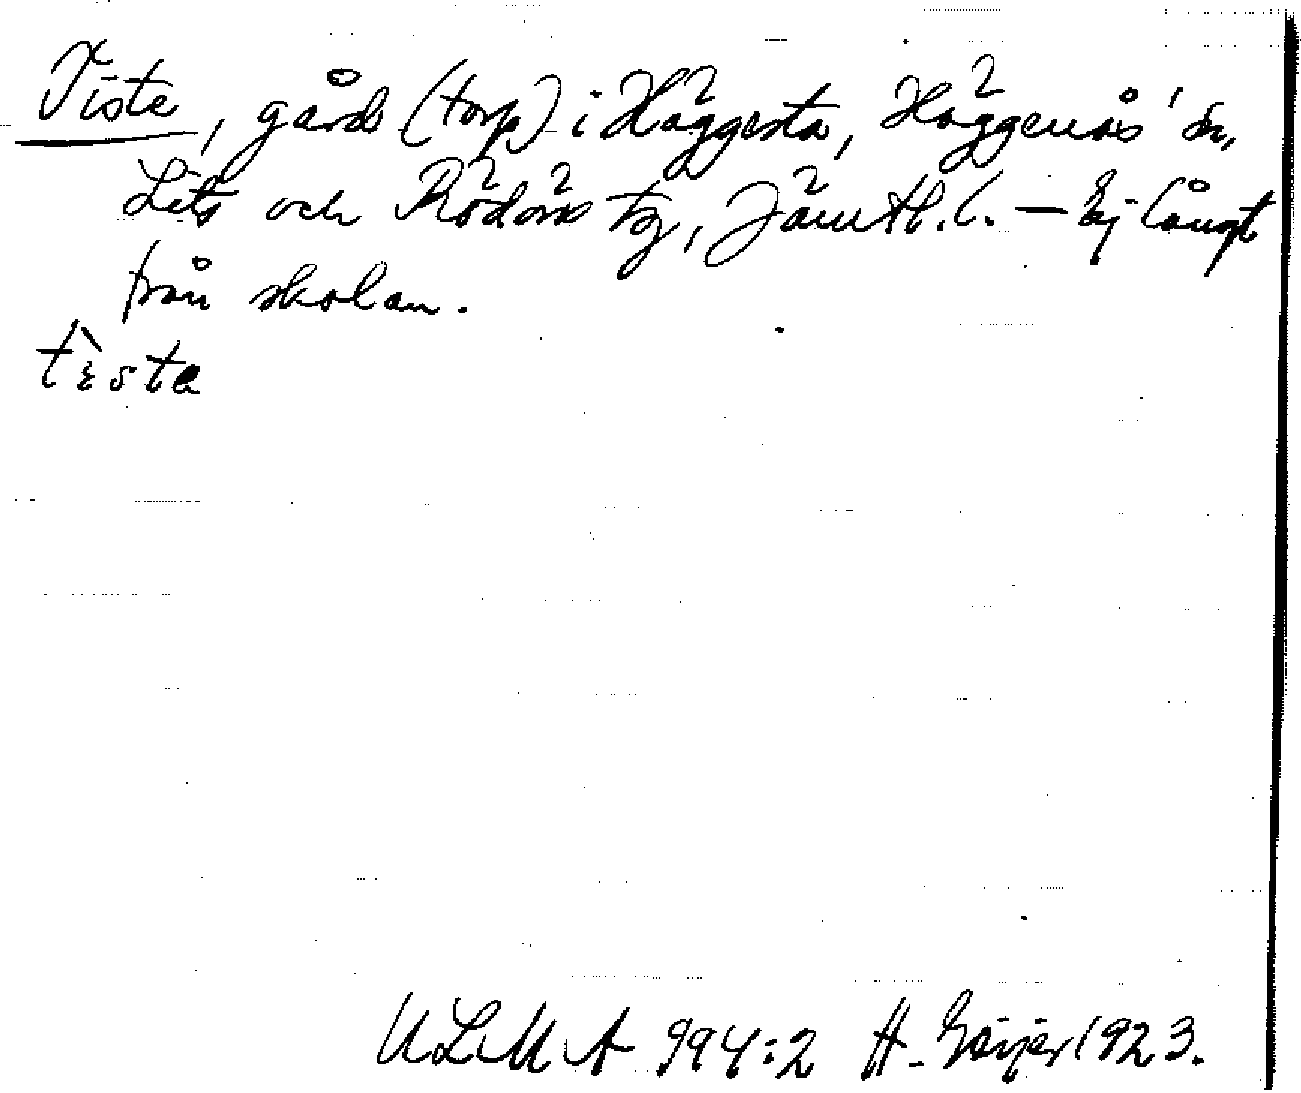 Viste, gård (torp) i Häggesta, Häggenås' sn,
Lits och Rödöns tg, Jämtl. l. — Ej långt
från skolan.
tèsta
ULMA 994:2 H. Geijer 1923.